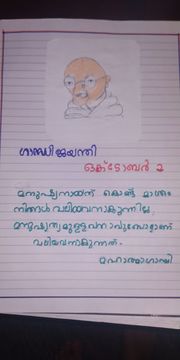 ഗാന്ധിജയന്തി
ഒക്ടോബർ 2
മനുഷ്യനായത് കൊണ്ട് മാത്രം
നിങ്ങൾ വലിയവനാകുന്നില്ല,
മനുഷ്യത്വമുള്ളവനാവുമ്പോഴാണ്
വലിയവനാകുന്നത്.
മഹാത്മാഗാന്ധി